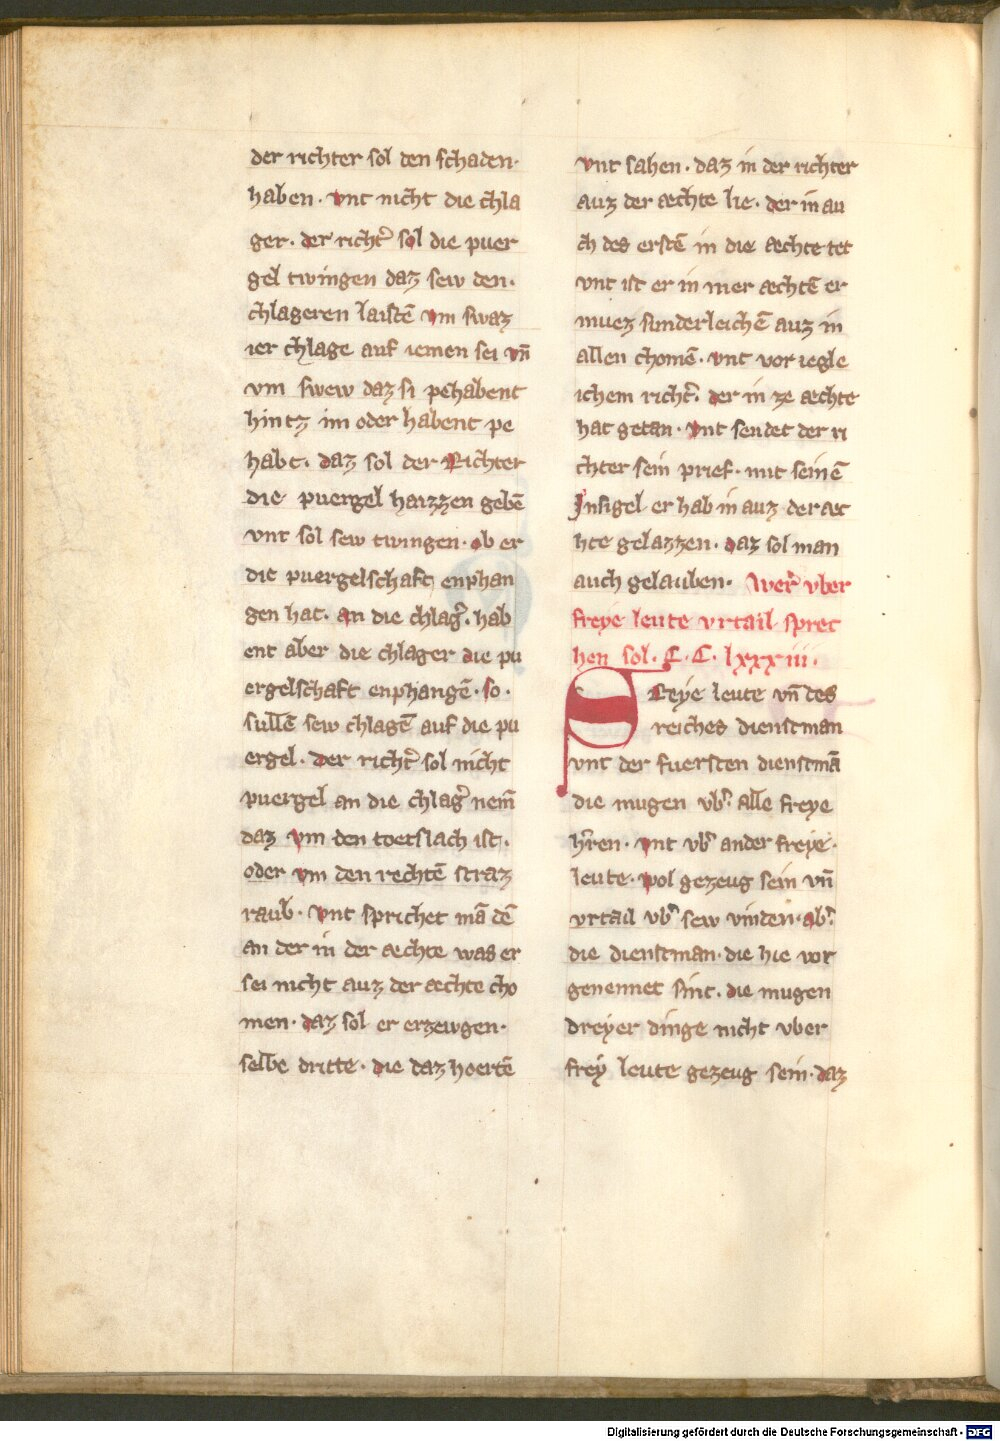 der richter sol den schaden·
haben· vnt nicht die chla
ger· der richt̄ sol die puer
gel twingen daz sew den·
chlageren laistē vm swaz
ier chlage auf iemen sei vn̄
vm swew daz si pehabent
hintz im oder habent pe
habt· daz sol der Richter
die puergel haizzen gebē
vnt sol sew twingen· ob er
die puergelschaft enphan
gen hat· an die chlaḡ· hab
ent aber die chlager die pu
ergelschaft enphangē· so·
sullē sew chlagē auf die pu
ergel· der richt̄ sol nicht
puergel an die chlaḡ nem̄
daz vm den toetslach ist·
oder vm den rechtē straz
raub· vnt sprichet mā dē
an der in der æchte was er
sei nicht auz der æchte cho
men· daz sol er erzewgen·
selbe dritte· die daz hoertē
vnt sahen· daz in der richter
auz der æchte lie· der in au
ch des erstē in die æchte tet
vnt ist er in mer æchtē er
muez sunderleichē auz in
allen chomē· vnt vor iegle
ichem richt̄· der in ze æchte
hat getan· vnt sendet der ri
chter sein prief· mit seinē
Insigel er hab in auz der æc
hte gelazzen· daz sol man
auch gelauben· Wer̄ vber
freye leute vrtail sprec
hen sol· C· C· lxxxiii·
Freye leute vn̄ des
reiches dienstman
vnt der fuersten dienstmā
die mugen vb̄ alle freye
hr̄en· vnt vb̄ ander freye·
leute· wol gezeug sein vn̄
vrtail vb̄ sew vinden· ab̄
die dienstman· die hie vor
genennet sint· die mugen
dreyer dinge nicht vber
frey leute gezeug sein· daz
Digitalisierung gefördert durch die Deutsche Forschungsgemeinschaft - DFG